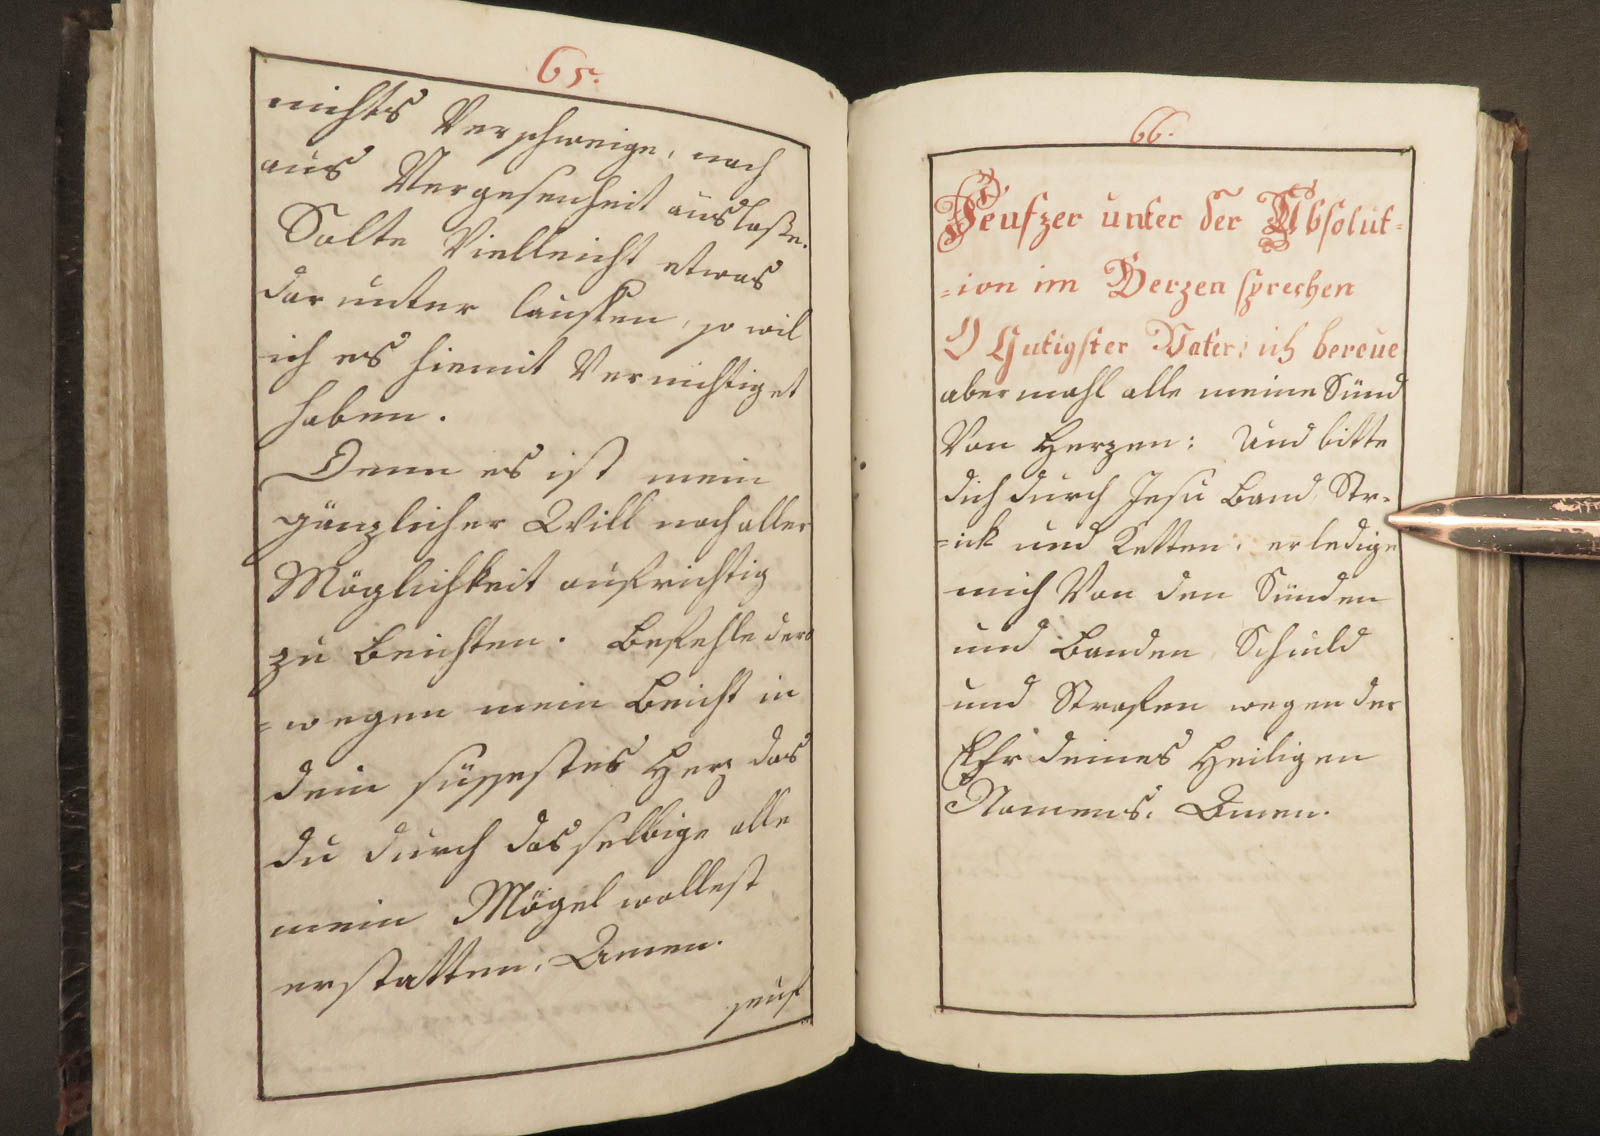 65.
nichts Verschweige, noch
aus Vergesenheit auslaße.
Solte Vielleicht etwas
dar unter lauffen, so wil
ich es hiemit Vernichtiget
haben.
Denn es ist mein
gänzlicher Will nach aller
Möglichkeit aufrichtig
zu beichten. Befehle dero
=wegen mein Beicht in
dein süssestes Herz das
du durch das selbige alle
mein Mögel wollest
erstatten, Amen.
seuf
66.
Seufzer unter der Absolut=
=ion im Herzen sprechen
O Gutigster Vater, ich bereue
aber mahl alle meine Sünd
Von Herzen: Und bitte
dich durch Jesu Band, Str=
=ick und Ketten, erledige
mich Von den Sünden
und Banden, Schuld
und Strafen wegen der
Ehr deines Heiligen
Namens, Amen.